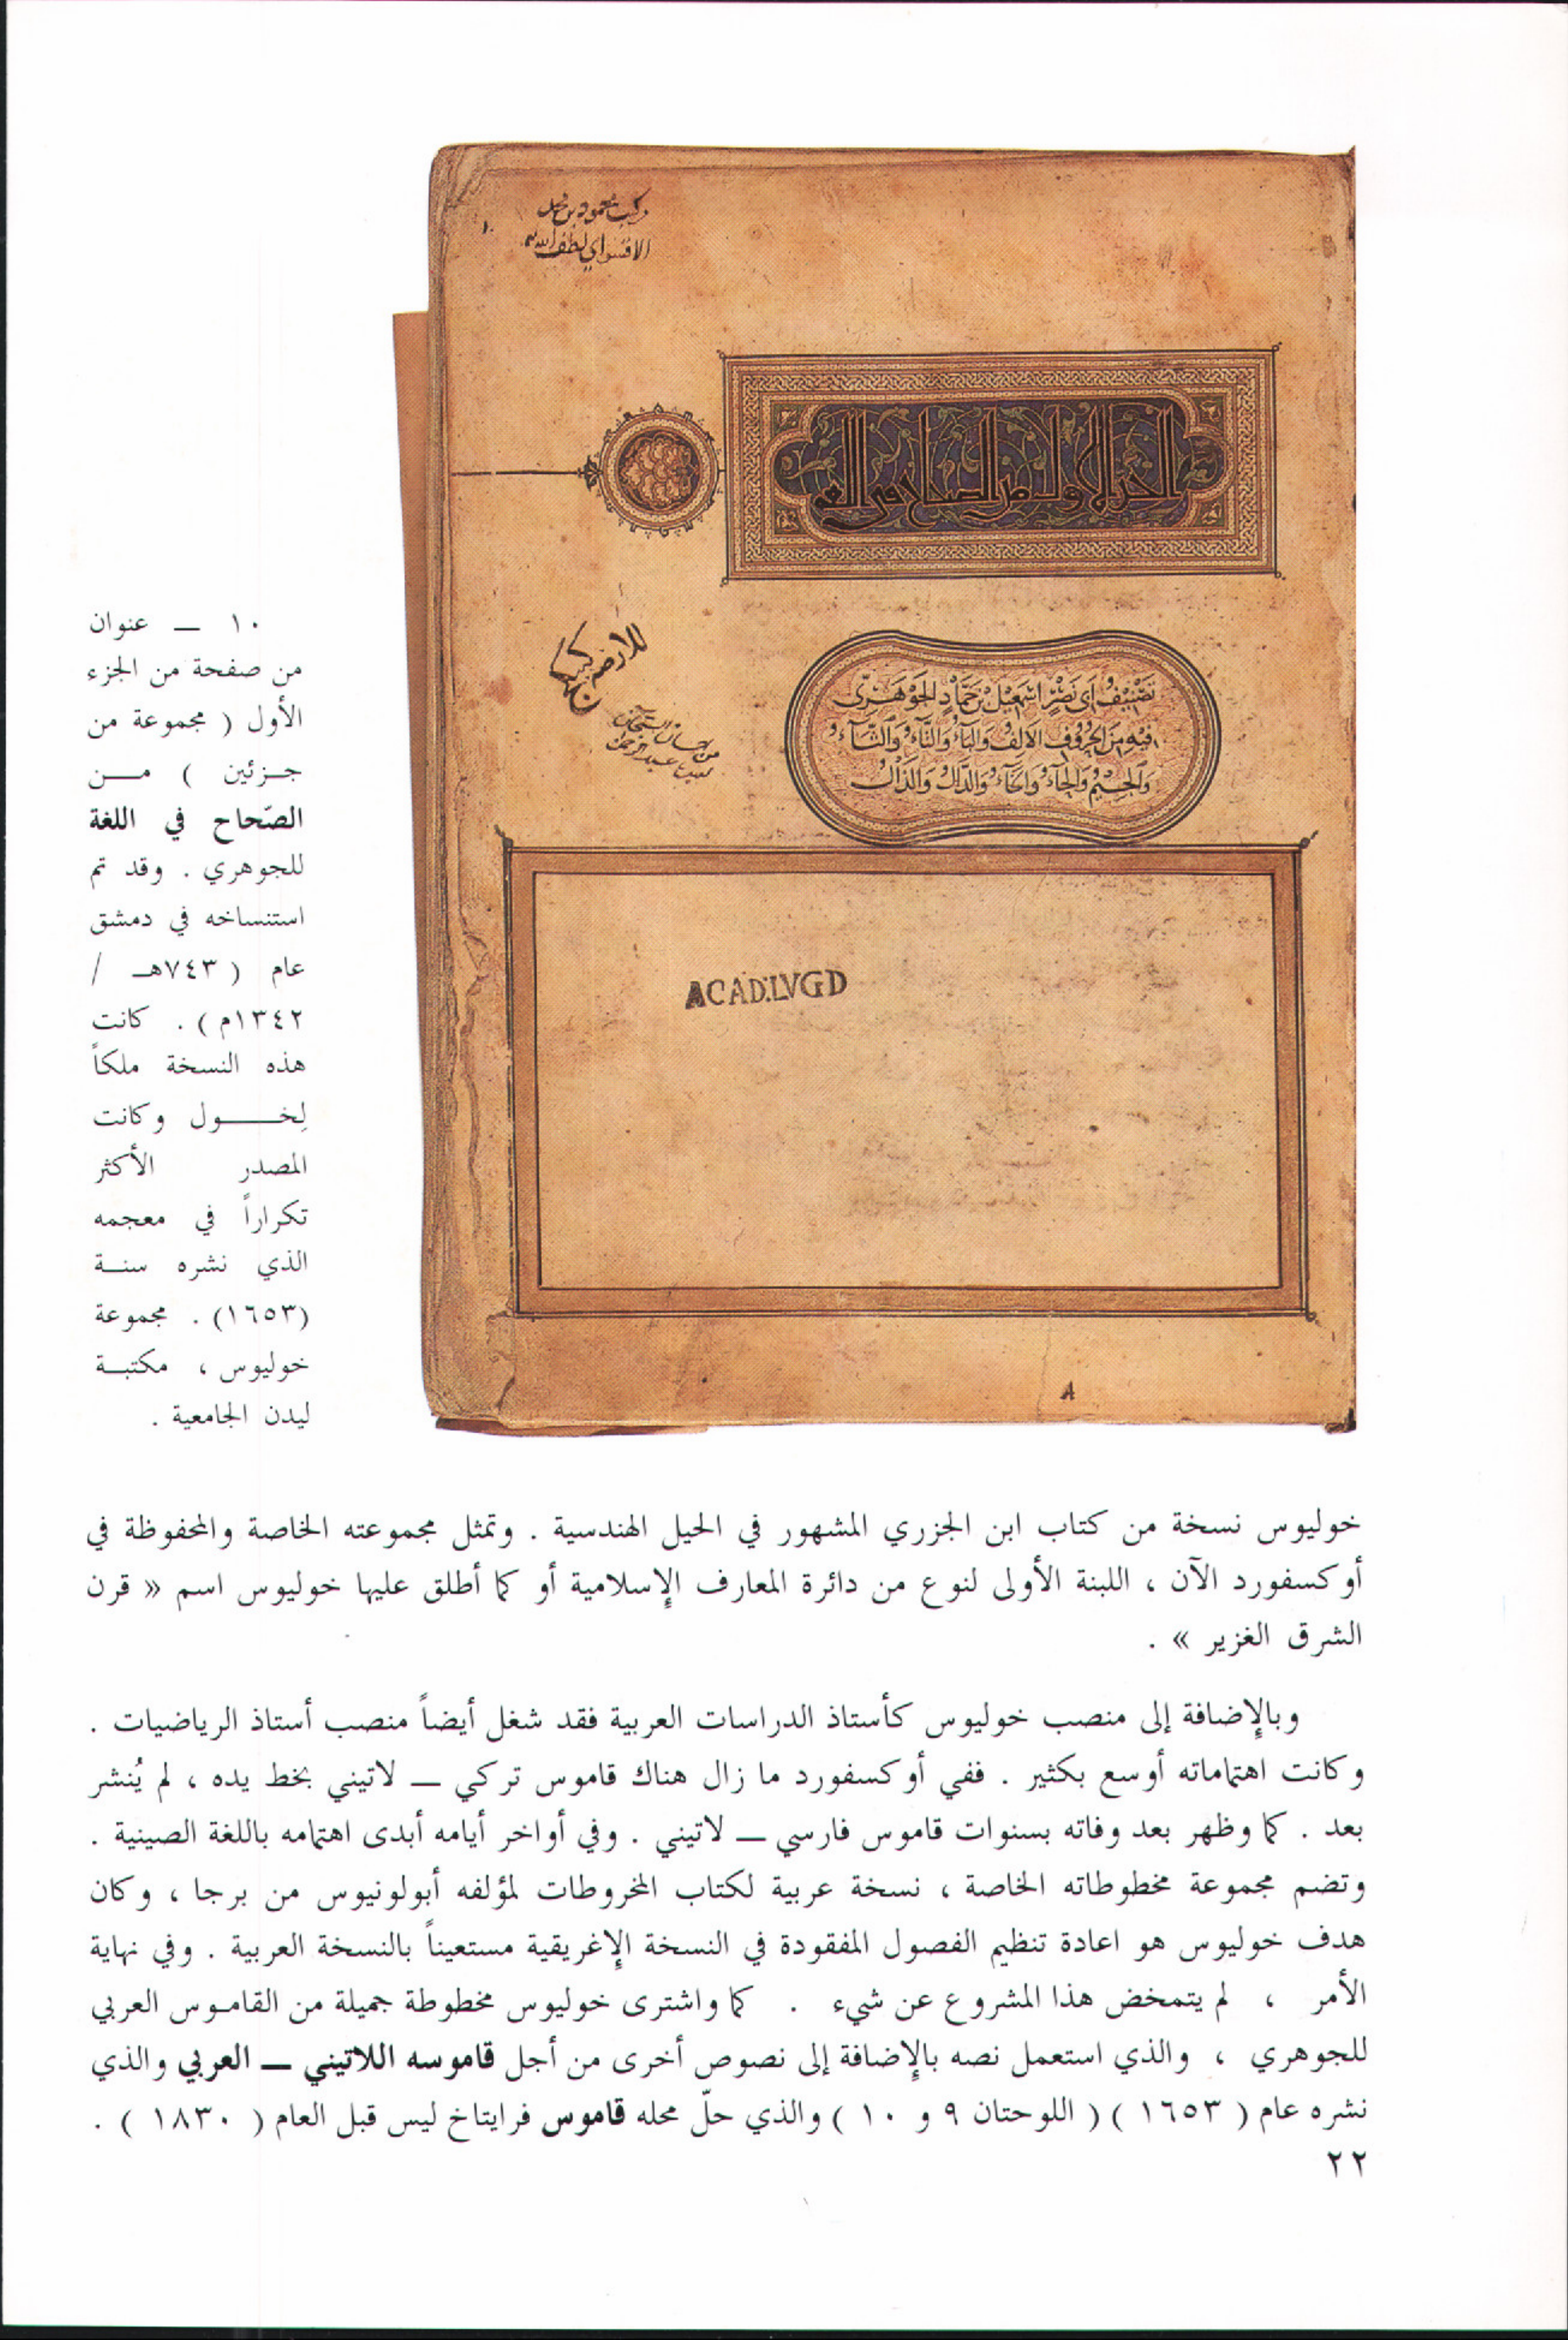 الجزء الاول من الصحاح في اللغة
تصنيف ابي نصر اسمعيل بن حماد الجوهري
فيه من الحروف الالف والباء والتاء والثاء
والجيم والحاء والخاء والدال والذال
ACAD.LVGD
١٠ — عنوان
من صفحة من الجزء
الأول ( مجموعة من
جزئين ) من
الصّحاح في اللغة
للجوهري . وقد تم
استنساخه في دمشق
عام ( ٧٤٣هـ /
١٣٤٢م ) . كانت
هذه النسخة ملكاً
لِخول وكانت
المصدر الأكثر
تكراراً في معجمه
الذي نشره سنة
(١٦٥٣) . مجموعة
خوليوس ، مكتبة
ليدن الجامعية .
خوليوس نسخة من كتاب ابن الجزري المشهور في الحيل الهندسية . وتمثل مجموعته الخاصة والمحفوظة في
أوكسفورد الآن ، اللبنة الأولى لنوع من دائرة المعارف الإسلامية أو كما أطلق عليها خوليوس اسم « قرن
الشرق الغزير » .
وبالإضافة إلى منصب خوليوس كأستاذ الدراسات العربية فقد شغل أيضاً منصب أستاذ الرياضيات .
وكانت اهتماماته أوسع بكثير . ففي أوكسفورد ما زال هناك قاموس تركي — لاتيني بخط يده ، لم يُنشر
بعد . كما وظهر بعد وفاته بسنوات قاموس فارسي — لاتيني . وفي أواخر أيامه أبدى اهتمامه باللغة الصينية .
وتضم مجموعة مخطوطاته الخاصة ، نسخة عربية لكتاب المخروطات لمؤلفه أبولونيوس من برجا ، وكان
هدف خوليوس هو اعادة تنظيم الفصول المفقودة في النسخة الإغريقية مستعيناً بالنسخة العربية . وفي نهاية
الأمر ، لم يتمخض هذا المشروع عن شيء . كما واشترى خوليوس مخطوطة جميلة من القاموس العربي
للجوهري ، والذي استعمل نصه بالإضافة إلى نصوص أخرى من أجل قاموسه اللاتيني — العربي والذي
نشره عام ( ١٦٥٣ ) ( اللوحتان ٩ و ١٠ ) والذي حلّ محله قاموس فرايتاخ ليس قبل العام ( ١٨٣٠ ) .
٢٢